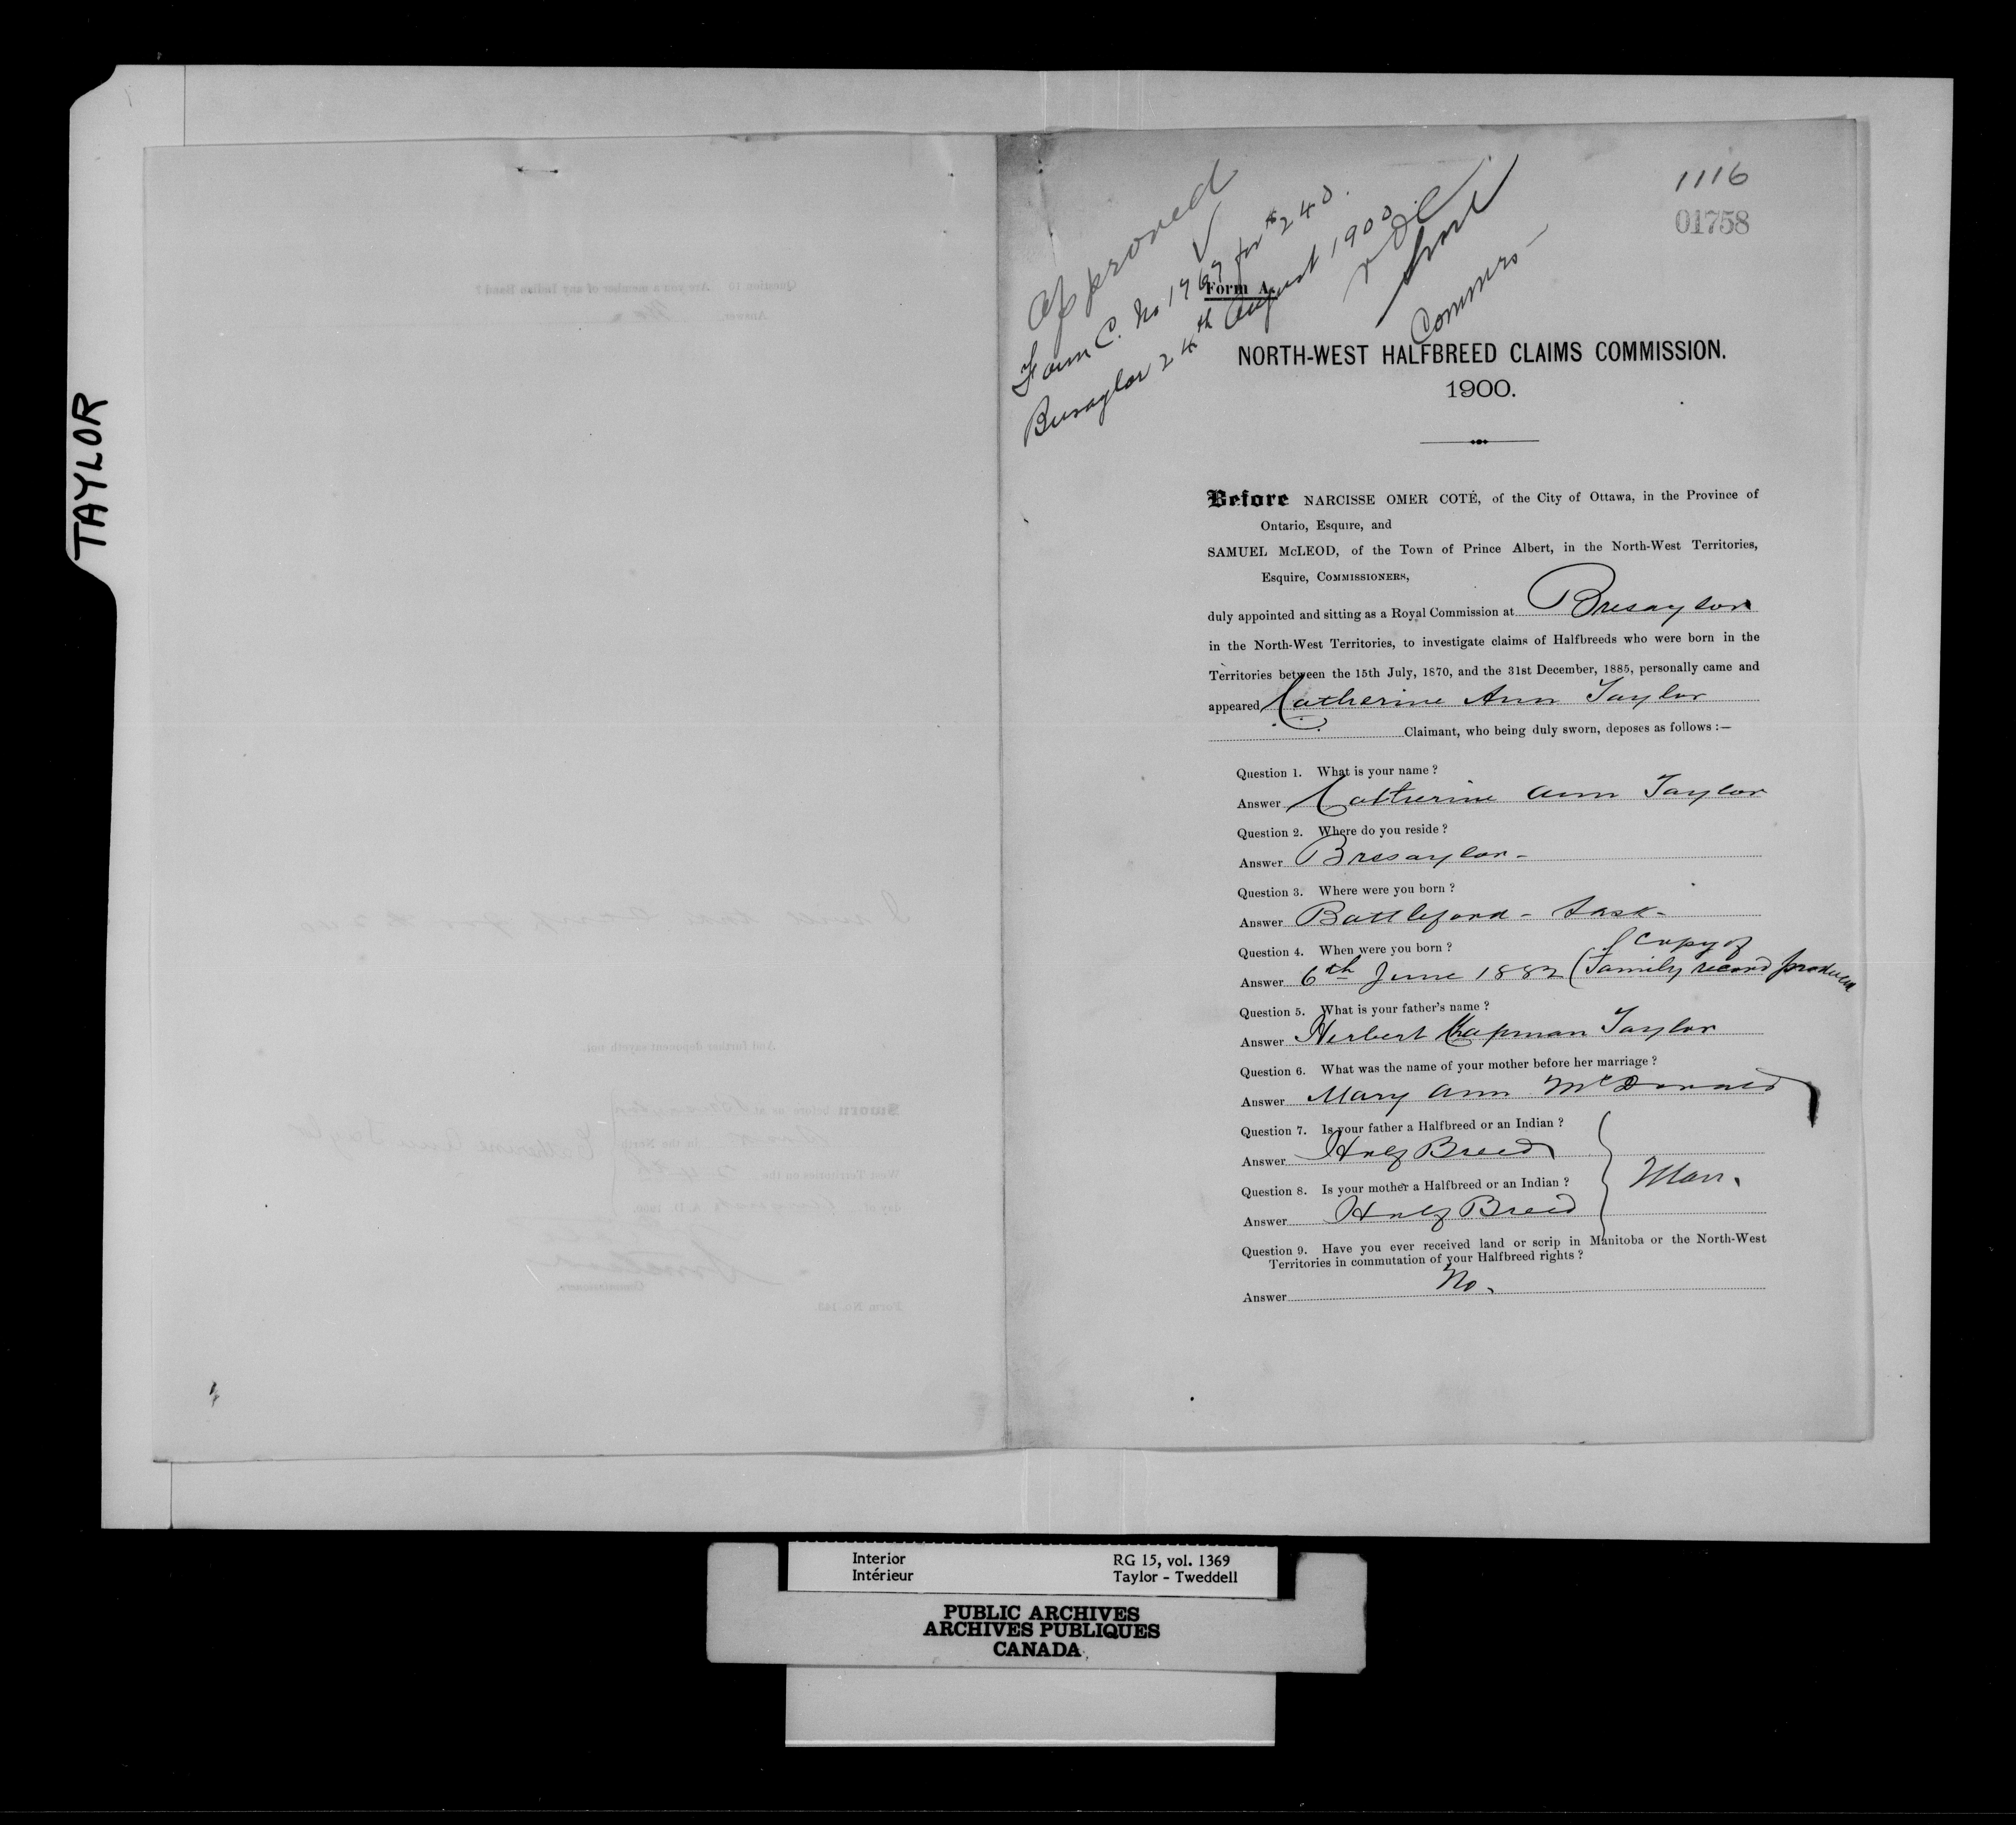 TAYLOR
1116
01758
Approved
Form C. No 1767 for $240.
Bresaylor 24th August 1900
Commrs
Form A.
NORTH-WEST HALFBREED CLAIMS COMMISSION.
1900.
Before NARCISSE OMER COTÉ, of the City of Ottawa, in the Province of
Ontario, Esquire, and
SAMUEL McLEOD, of the Town of Prince Albert, in the North-West Territories,
Esquire, COMMISSIONERS,
duly appointed and sitting as a Royal Commission at Bresaylor
in the North-West Territories, to investigate claims of Halfbreeds who were born in the
Territories between the 15th July, 1870, and the 31st December, 1885, personally came and
appeared Catherine Ann Taylor
Claimant, who being duly sworn, deposes as follows :—
Question 1. What is your name ?
Answer Catherine Ann Taylor
Question 2. Where do you reside ?
Answer Bresaylor -
Question 3. Where were you born ?
Answer Battleford - Sask -
Question 4. When were you born ?
Answer 6th June 1882 (Copy of Family record produced
Question 5. What is your father's name ?
Answer Herbert Chapman Taylor
Question 6. What was the name of your mother before her marriage ?
Answer Mary Ann McDonald
Question 7. Is your father a Halfbreed or an Indian ?
Answer Half Breed
Question 8. Is your mother a Halfbreed or an Indian ?
Answer Half Breed
Man.
Question 9. Have you ever received land or scrip in Manitoba or the North-West
Territories in commutation of your Halfbreed rights ?
Answer No.
Interior
Intérieur
RG 15, vol. 1369
Taylor - Tweddell
PUBLIC ARCHIVES
ARCHIVES PUBLIQUES
CANADA